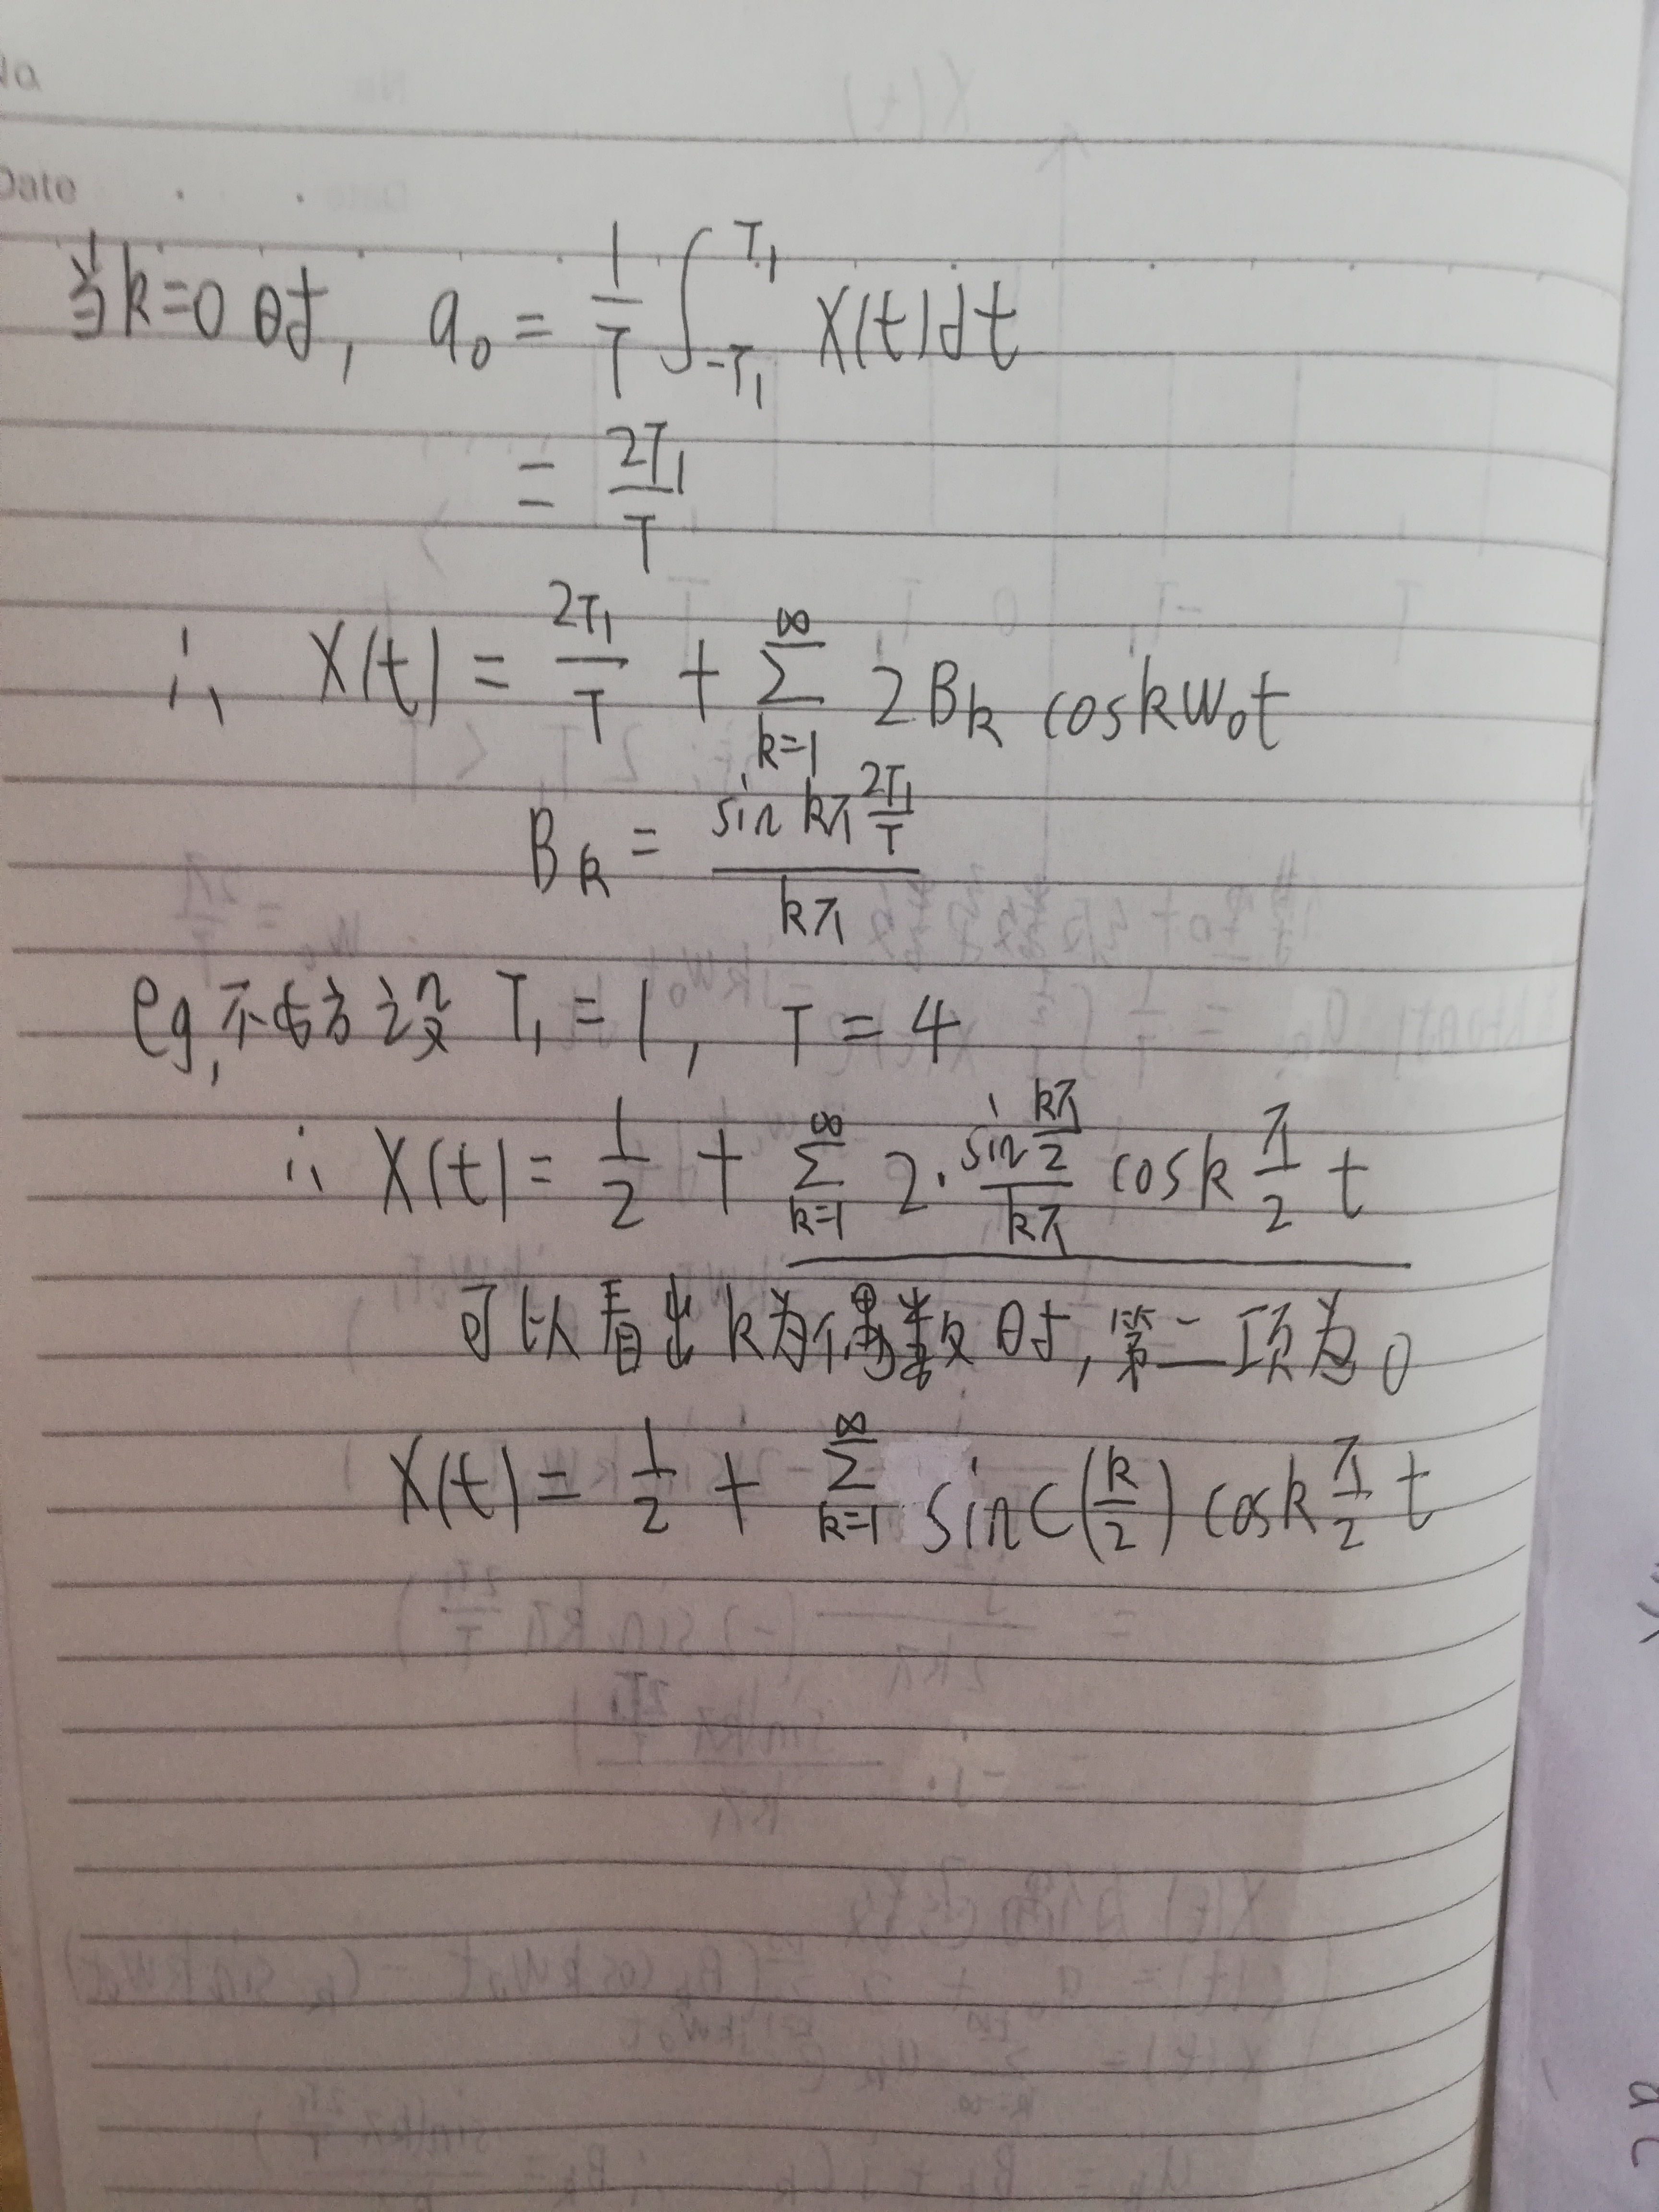 No
Date
当k=0时, a₀ = 1/T ∫_{-T₁}^{T₁} X(t)dt
= 2T₁/T
∴ X(t) = 2T₁/T + ∑_{k=1}^{∞} 2B_k cos kw₀t
B_k = (sin kπ 2T₁/T)/(kπ)
eg, 不妨设 T₁ = 1, T = 4
∴ X(t) = 1/2 + ∑_{k=1}^{∞} 2·(sin kπ/2)/(kπ) cos k π/2 t
可以看出k为偶数时,第二项为0
X(t) = 1/2 + ∑_{k=1}^{∞} sinc(k/2) cos k π/2 t